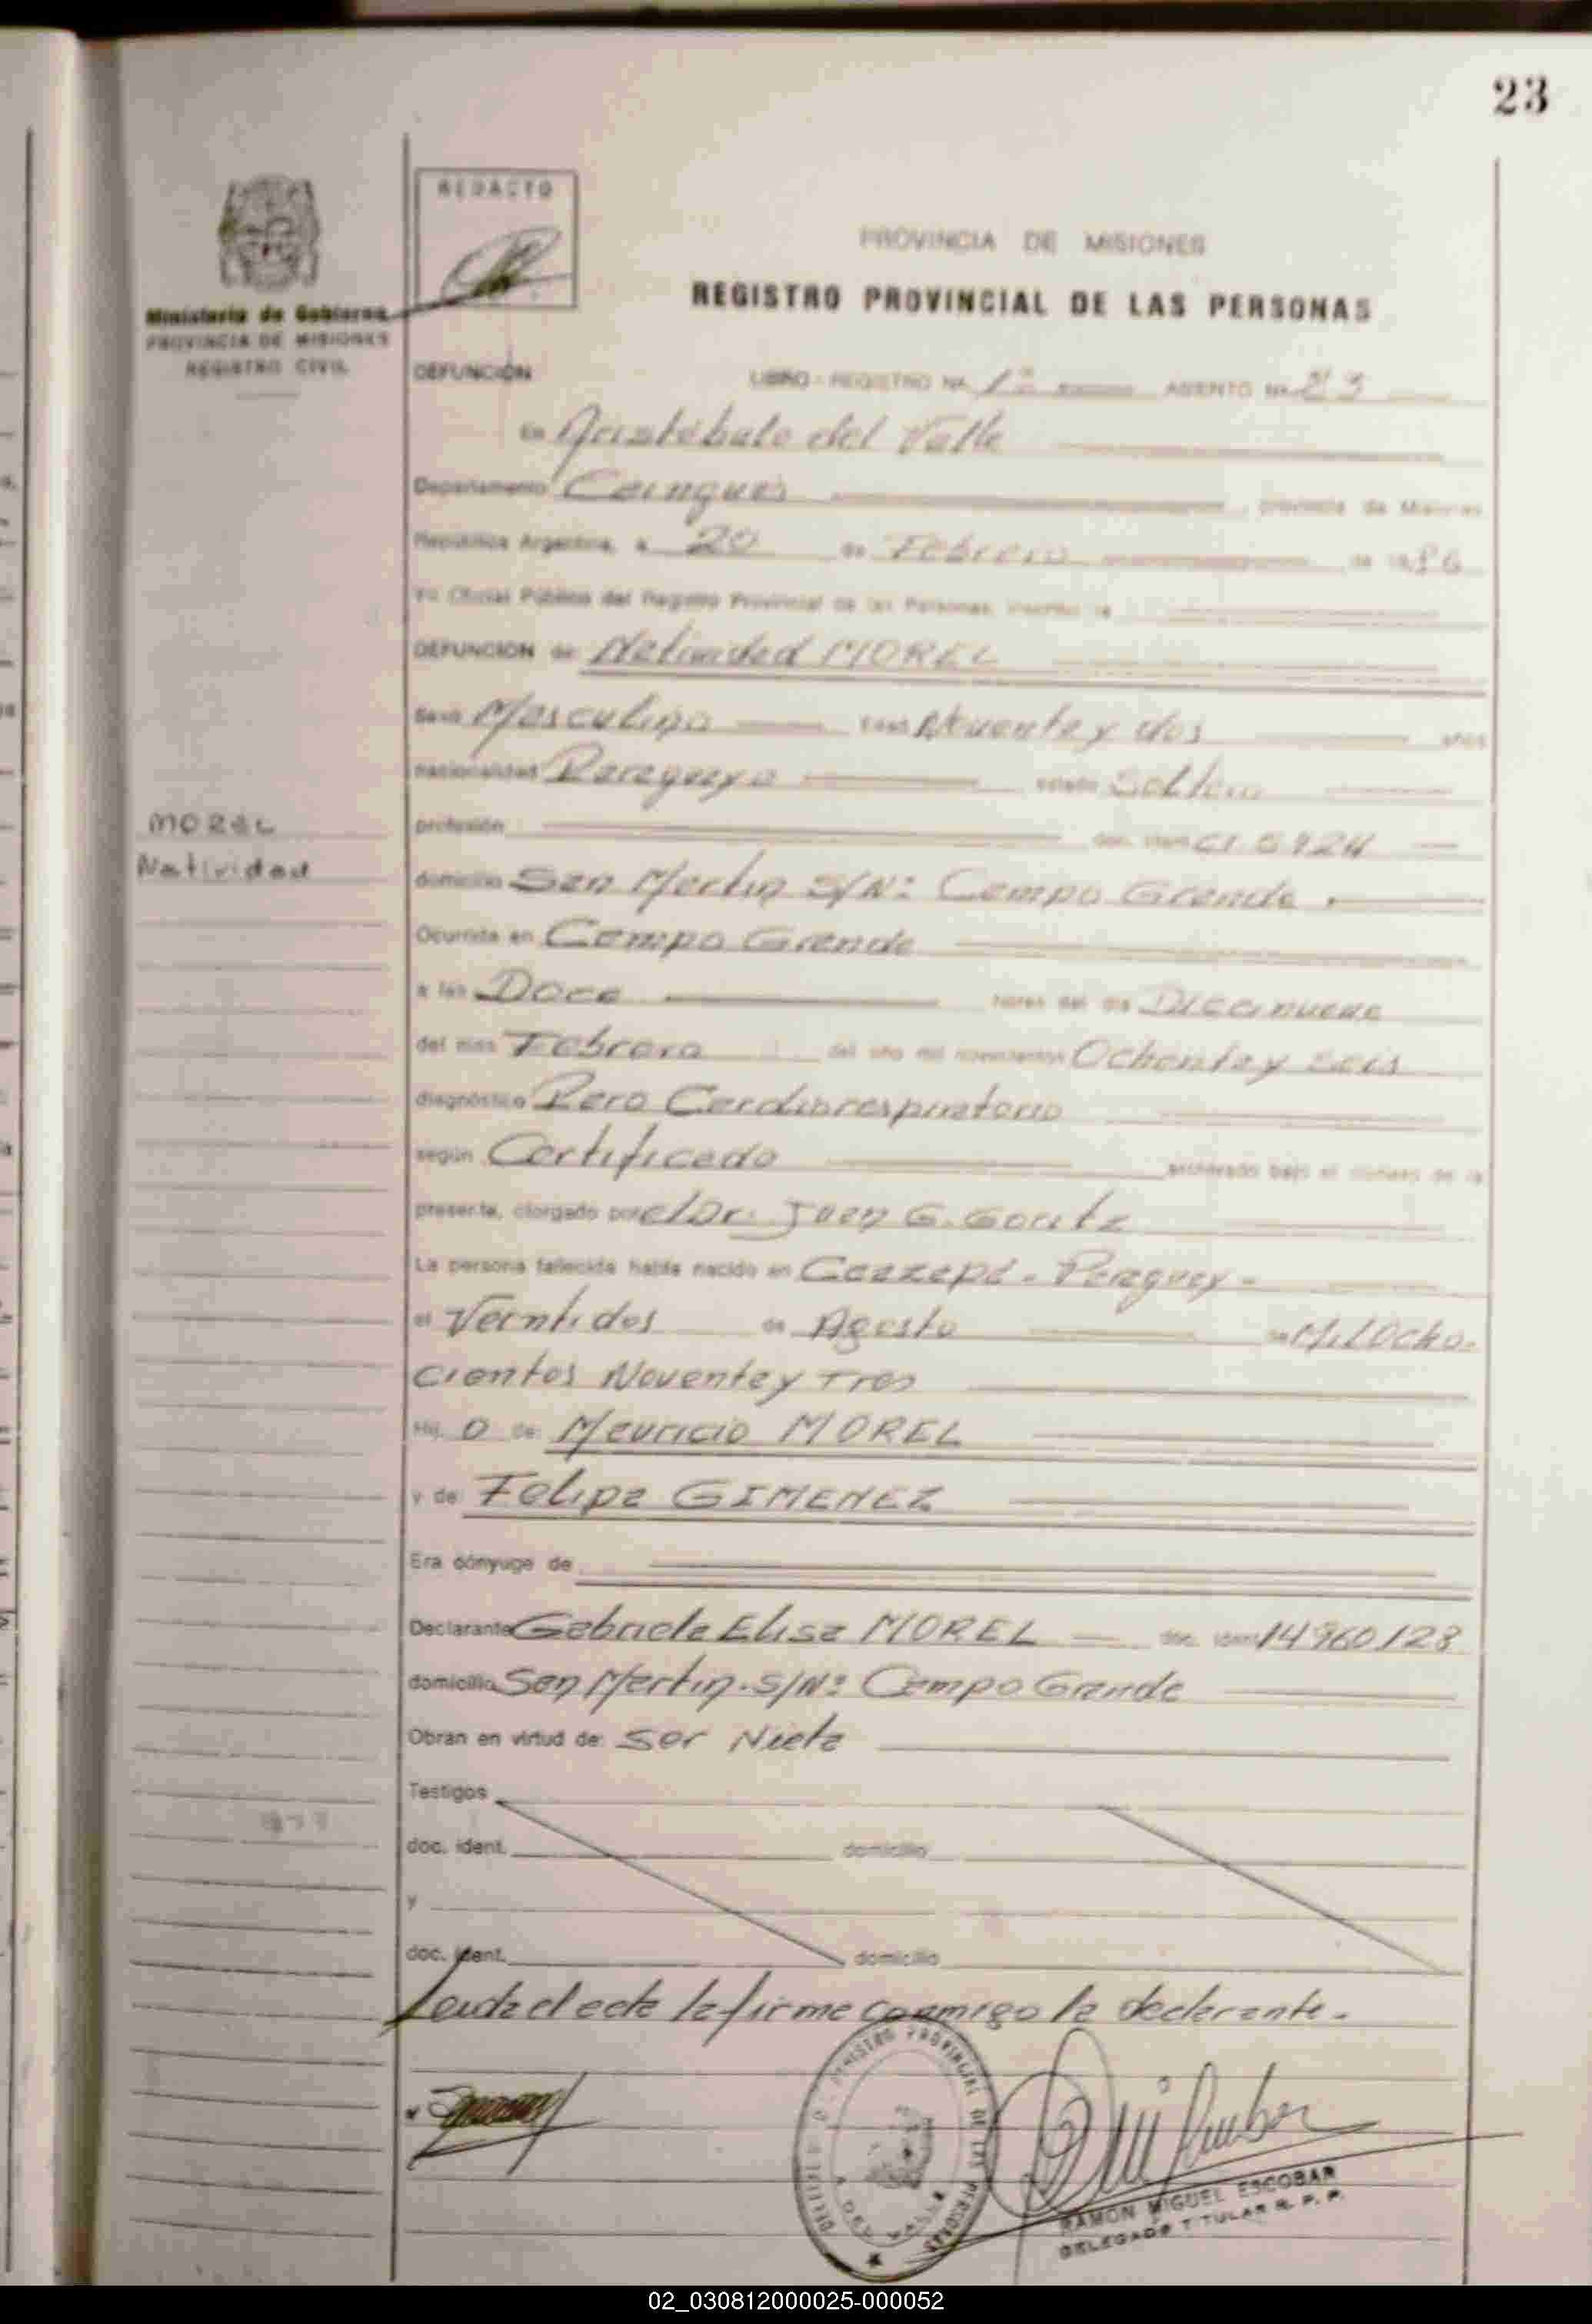 23
REDACTO
PROVINCIA DE MISIONES
REGISTRO PROVINCIAL DE LAS PERSONAS
Ministerio de Gobierno
PROVINCIA DE MISIONES
REGISTRO CIVIL
DEFUNCIÓN LIBRO - REGISTRO Nº 1º ASIENTO Nº 23
En Aristóbulo del Valle
Departamento Cainguás, provincia de Misiones
República Argentina, a 20 de Febrero de 1986
Yo Oficial Público del Registro Provincial de las Personas, inscribo la
DEFUNCION de Natividad MOREL
Sexo Masculino Edad Noventa y dos años
nacionalidad Paraguaya estado Soltero
MOREL
Natividad
profesión doc. ident. CI
domicilio San Martin S/Nº Campo Grande.
Ocurrida en Campo Grande
a las Doce horas del dia Diecinueve
del mes Febrero del año mil novecientos Ochenta y seis
diagnóstico Paro Cardiorespiratorio
según Certificado archivado bajo el número de la
presente, otorgado por el Dr. Juan G.
La persona fallecida había nacido en Caazapá - Paraguay -
el Veintidos de Agosto de Mil Ocho-
cientos Noventa y Tres
Hij o de Mauricio MOREL
y de Felipa GIMENEZ
Era cónyuge de
Declarante Gabriela Elisa MOREL doc. ident. 14960128
domicilio San Martin. S/Nº Campo Grande
Obran en virtud de: ser Nieta
Testigos
doc. ident. domicilio
y
doc. ident. domicilio
Leida el acta la firma conmigo la declarante.
REGISTRO PROVINCIAL DE LAS PERSONAS
RAMON MIGUEL ESCOBAR
DELEGADO TITULAR R. P. P.
02_030812000025-000052